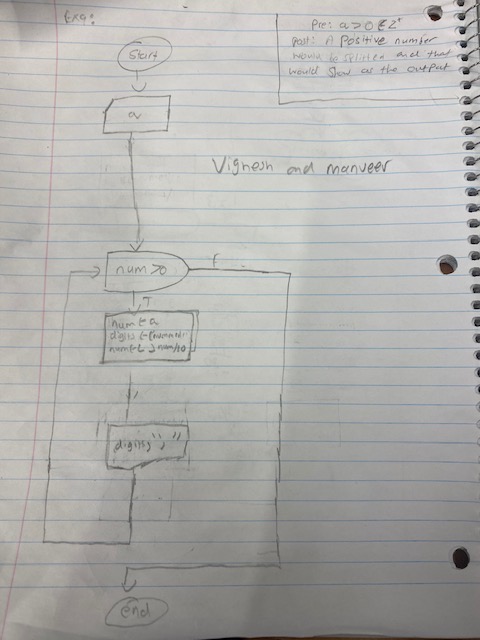 Ex9:
Pre: a > 0 ∈ Z⁺
post: A Positive number
would be splitted and that
would show as the output
Start
a
Vignesh and manveer
num >0
F
T
num ← a
digits ←
num ← num/10
digits, " "
end